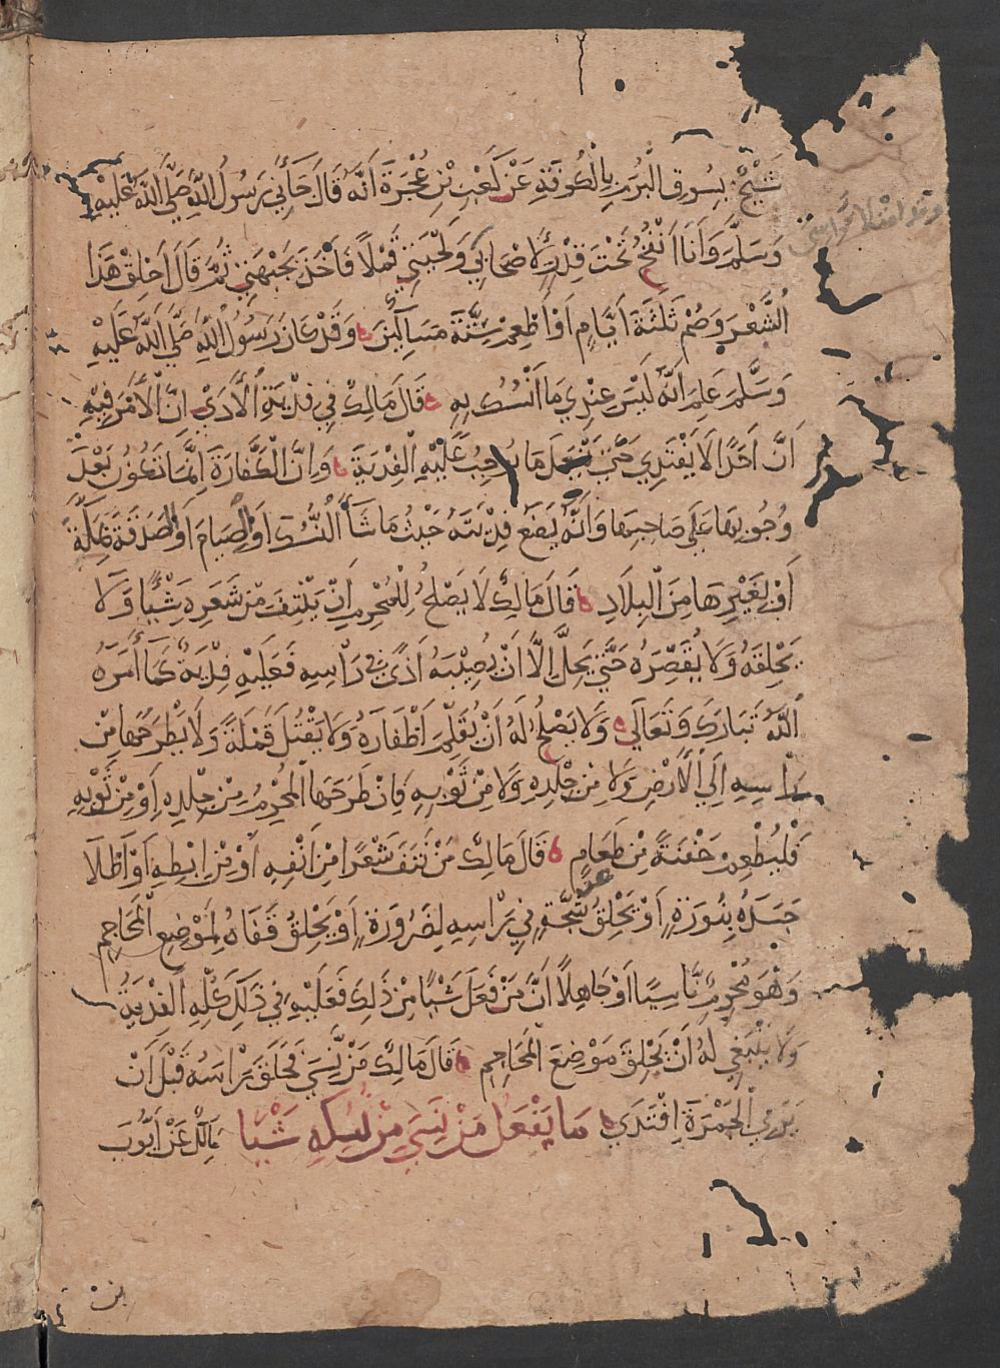 شَيْخٌ بِسُوقِ الْبُرَمِ بِالْكُوفَةِ عَنْ كَعْبِ بْنِ عُجْرَةَ أَنَّهُ قَالَ جَاءَنِي رَسُولُ اللَّهِ صَلَّى اللَّهُ عَلَيْهِ
وَسَلَّمَ وَأَنَا أَنْفُخُ تَحْتَ قِدْرٍ لِأَصْحَابِي وَلِحْيَتِي قَمْلًا فَأَخَذَ بِجَبْهَتِي ثُمَّ قَالَ احْلِقْ هَذَا
الشَّعْرَ وَصُمْ ثَلَثَةَ أَيَّامٍ أَوْ أَطْعِمْ سِتَّةَ مَسَاكِينَ وَقَدْ كَانَ رَسُولُ اللَّهِ صَلَّى اللَّهُ عَلَيْهِ
وَسَلَّمَ عَلِمَ أَنَّهُ لَيْسَ عِنْدِي مَا أَنْسُكُ بِهِ قَالَ مَالِكٌ فِي فِدْيَةِ الْأَذَى إِنَّ الْأَمْرَ فِيهِ
أَنَّ أَحَدًا لَا يَفْتَدِي حَتَّى يَفْعَلَ مَا يُوجِبُ عَلَيْهِ الْفِدْيَةَ وَإِنَّ الْكَفَّارَةَ إِنَّمَا تَكُونُ بَعْدَ
وُجُوبِهَا عَلَى صَاحِبِهَا وَأَنَّهُ يَضَعُ فِدْيَتَهُ حَيْثُ مَا شَاءَ النُّسُكَ أَوِ الصِّيَامَ أَوِ الصَّدَقَةَ بِمَكَّةَ
أَوْ بِغَيْرِهَا مِنَ الْبِلَادِ قَالَ مَالِكٌ لَا يَصْلُحُ لِلْمُحْرِمِ أَنْ يَنْتِفَ مِنْ شَعَرِهِ شَيْئًا وَلَا
يَحْلِقَهُ وَلَا يُقَصِّرَهُ حَتَّى يَحِلَّ إِلَّا أَنْ يُصِيبَهُ أَذًى فِي رَأْسِهِ فَعَلَيْهِ فِدْيَةٌ كَمَا أَمَرَهُ
اللَّهُ تَبَارَكَ وَتَعَالَى وَلَا يَصْلُحُ لَهُ أَنْ يُقَلِّمَ أَظْفَارَهُ وَلَا يَقْتُلَ قَمْلَةً وَلَا يَطْرَحَهَا مِنْ
رَأْسِهِ إِلَى الْأَرْضِ وَلَا مِنْ جِلْدِهِ وَلَا مِنْ ثَوْبِهِ فَإِنْ طَرَحَهَا الْمُحْرِمُ مِنْ جِلْدِهِ أَوْ مِنْ ثَوْبِهِ
فَلْيُطْعِمْ حَفْنَةً مِنْ طَعَامٍ قَالَ مَالِكٌ مَنْ نَتَفَ شَعْرًا مِنْ أَنْفِهِ أَوْ مِنْ إِبْطِهِ أَوْ أَطْلَا
جَسَدَهُ بِنُورَةٍ أَوْ يَحْلِقُ عَنْ شَجَّةٍ فِي رَأْسِهِ لِضَرُورَةٍ أَوْ يَحْلِقُ قَفَاهُ لِمَوْضِعِ الْمَحَاجِمِ
وَهُوَ مُحْرِمٌ نَاسِيًا أَوْ جَاهِلًا أَنَّ مَنْ فَعَلَ شَيْئًا مِنْ ذَلِكَ فَعَلَيْهِ فِي ذَلِكَ كُلِّهِ الْفِدْيَةُ
وَلَا يَنْبَغِي لَهُ أَنْ يَحْلِقَ مَوْضِعَ الْمَحَاجِمِ قَالَ مَالِكٌ مَنْ نَسِيَ فَحَلَقَ رَأْسَهُ قَبْلَ أَنْ
يَرْمِيَ الْجَمْرَةَ افْتَدَى مَا يَفْعَلُ مَنْ نَسِيَ مِنْ نُسُكِهِ شَيْئًا مَالِكٌ عَنْ أَيُّوبَ
بن